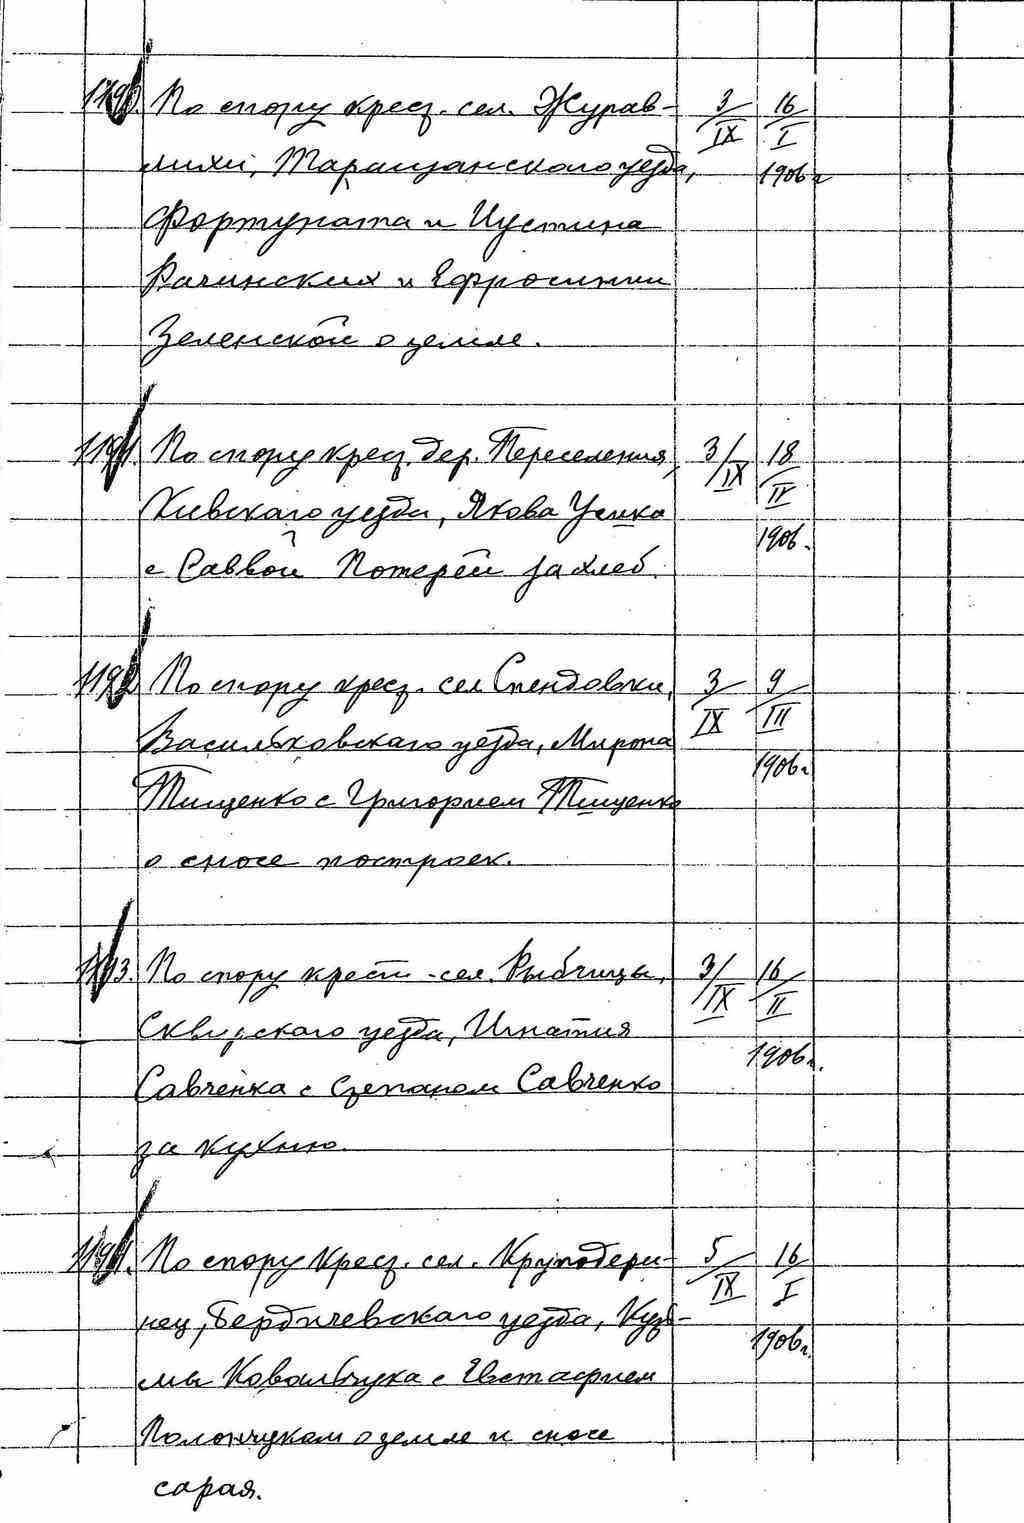 1190. По спору крест. сел. Журав- 3/IX 16/I
лихи, Таращанского уезда, 1906 г
Фортуната и Иустина
Рачинских и Ефросинии
Зеленской о земле.
1191. По спору крест. дер. Переселения, 3/IX 18/IV
Киевского уезда, Якова Усика 1906.
с Саввой Потерей за хлеб.
1192 По спору крест. сел Спендовки, 3/IX 9/III
Васильковского уезда, Мирона 1906 г
Тищенко с Григорием Тищенко
о сносе построек.
1193. По спору крест. сел. Рыбчицы, 3/IX 16/II
Сквирского уезда, Игнатия 1906 г.
Савченка с Степаном Савченко
за кухню.
1194. По спору крест. сел. Круподери- 5/IX 16/I
нец, Бердичевского уезда, Кузь- 1906 г.
мы Ковальчука с Евстафием
Полончуком о земле и сносе
сарая.